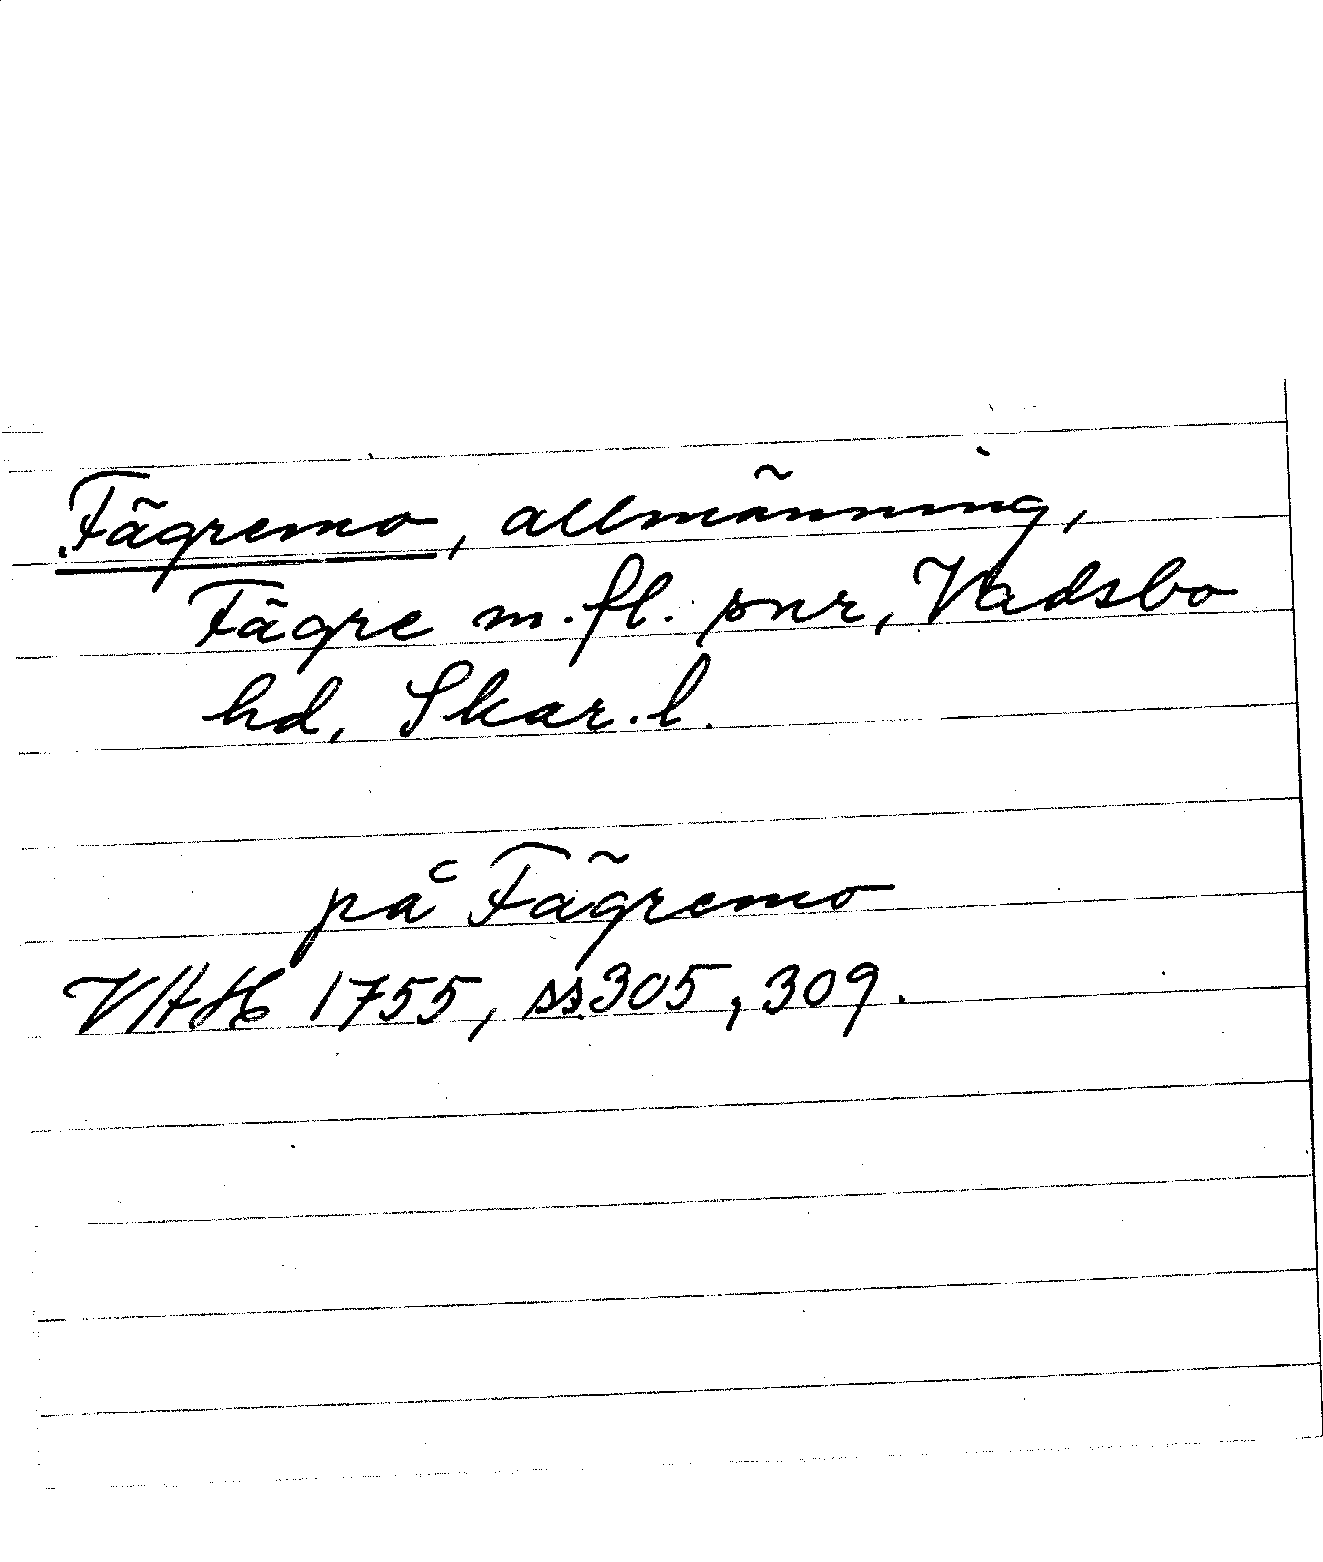 Fägremo, allmänning,
Fägre m.fl. snr, Vadsbo
hd, Skar.l.
på Fägremo
VAH 1755, ss 305, 309.